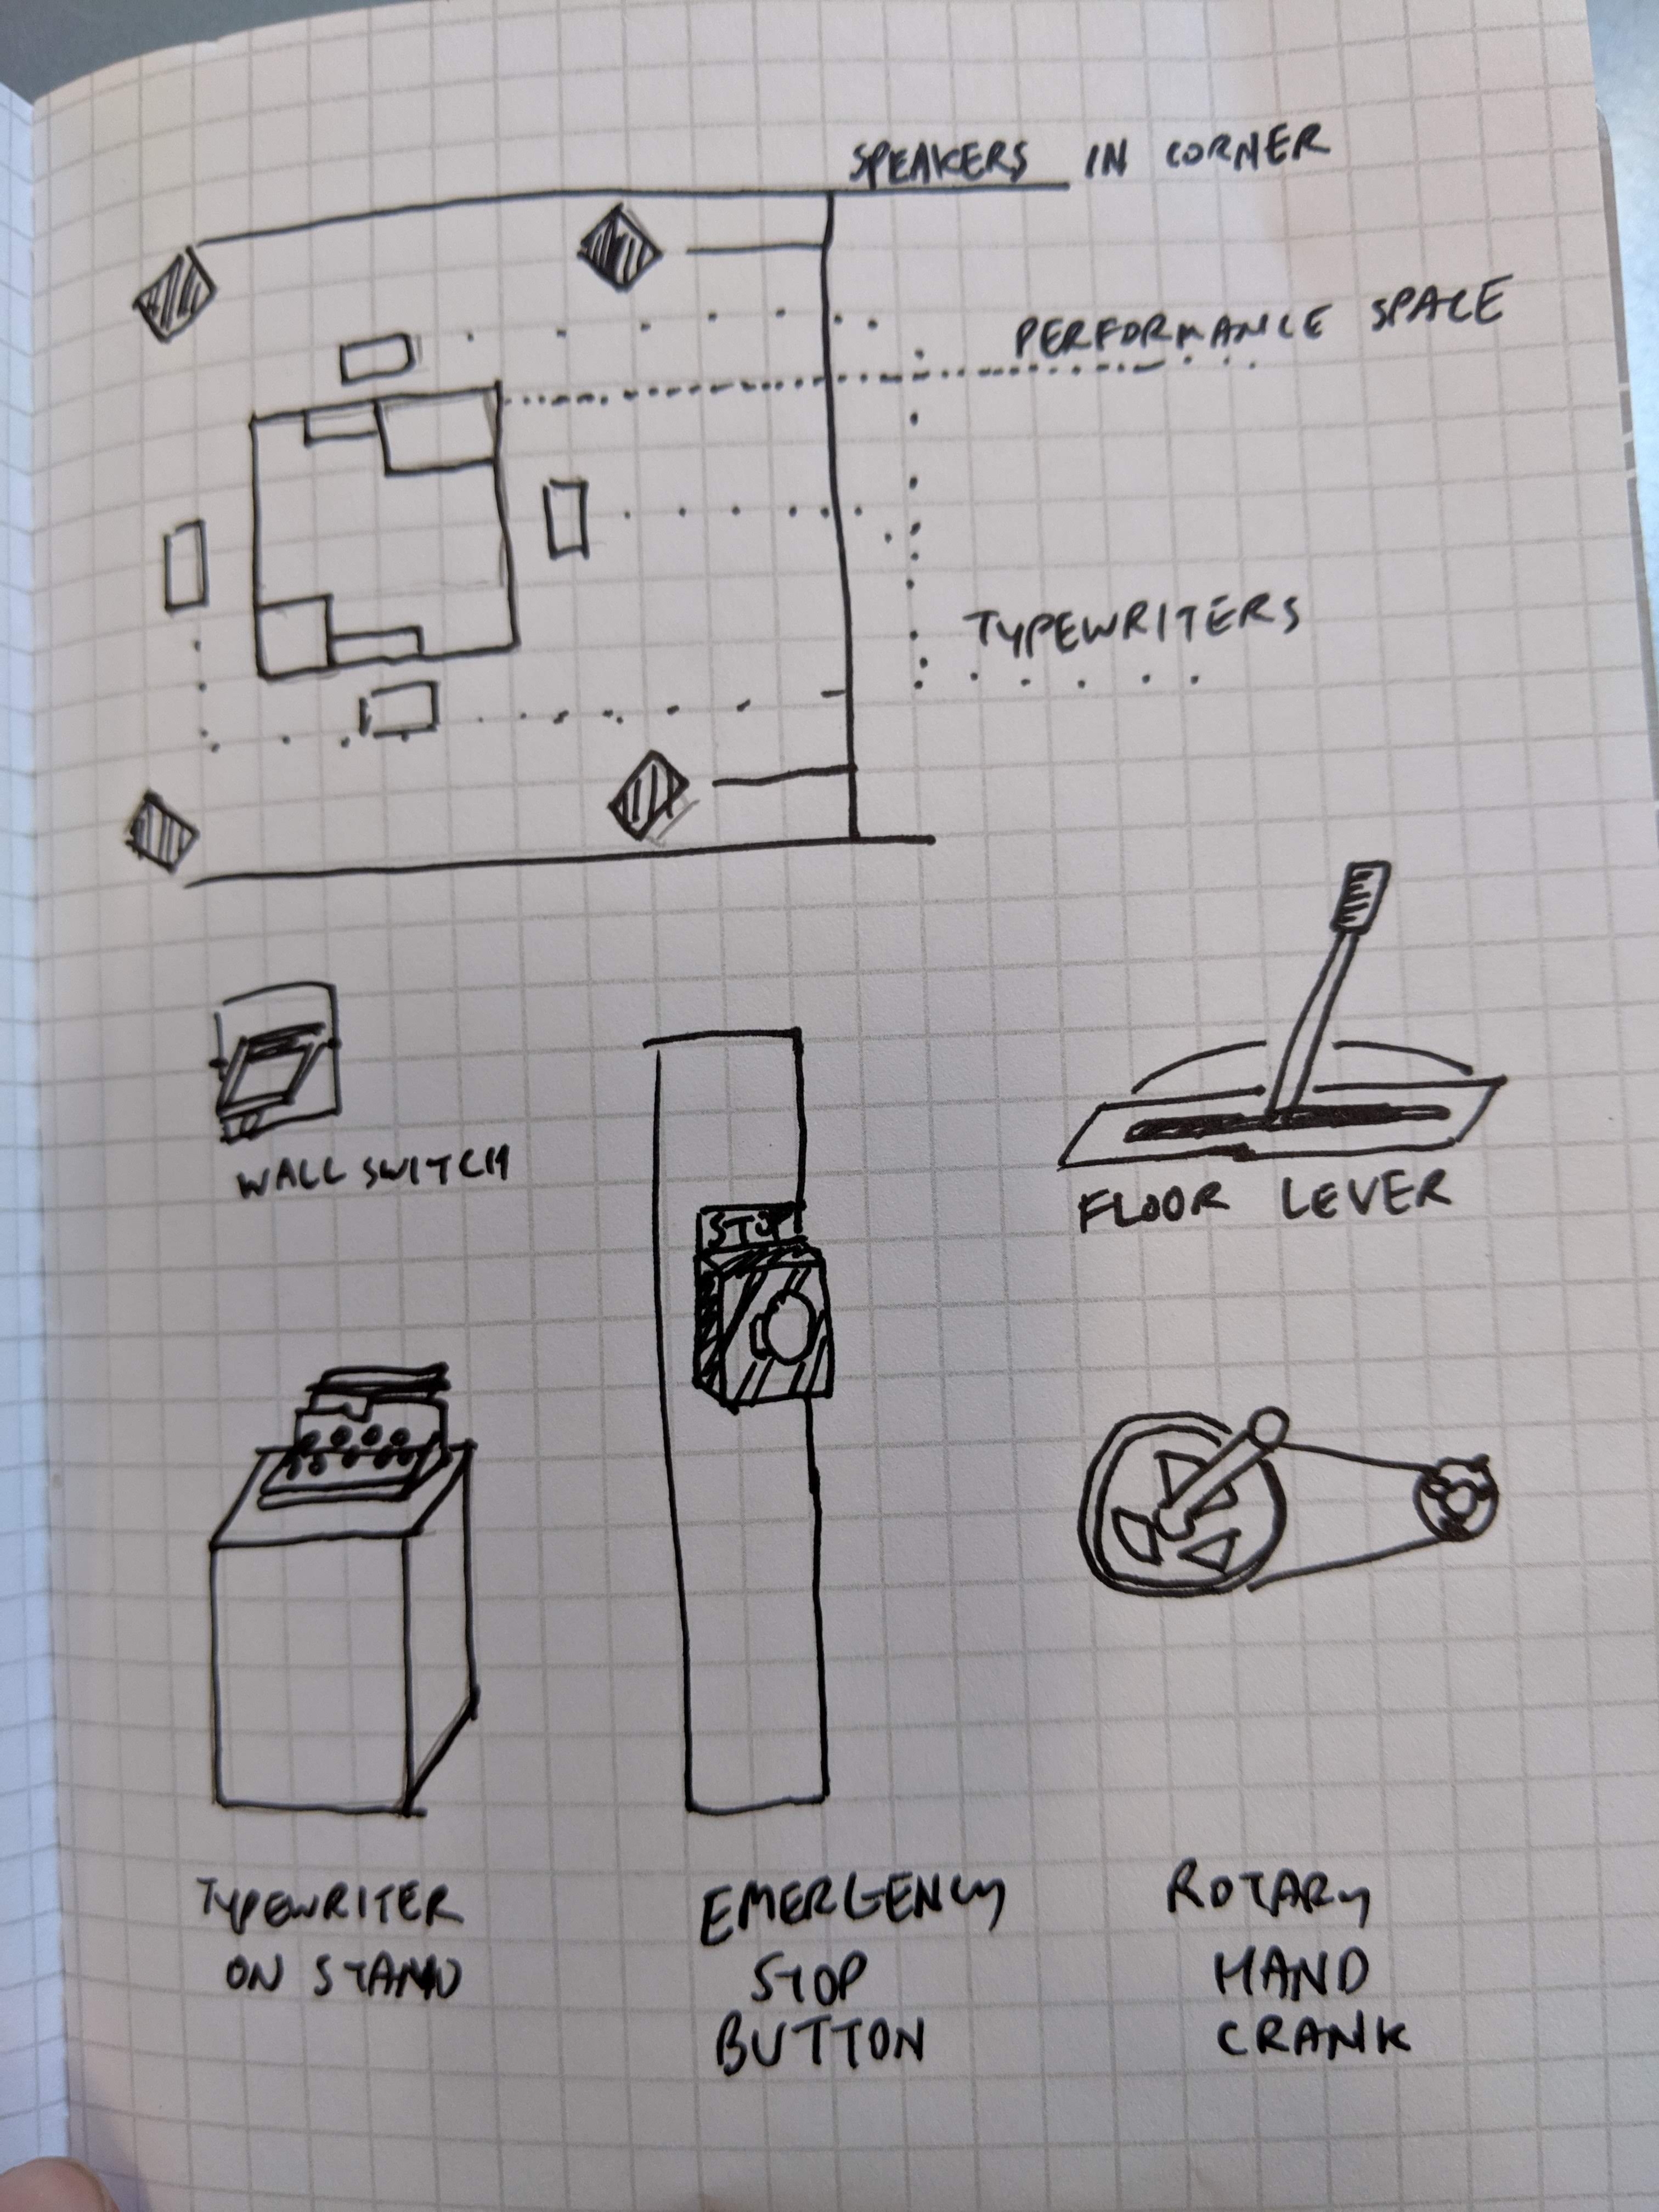 SPEAKERS IN CORNER
PERFORMANCE SPACE
TYPEWRITERS
WALL SWITCH
FLOOR LEVER
STOP
TYPEWRITER
ON STAND
EMERGENCY
STOP
BUTTON
ROTARY
HAND
CRANK